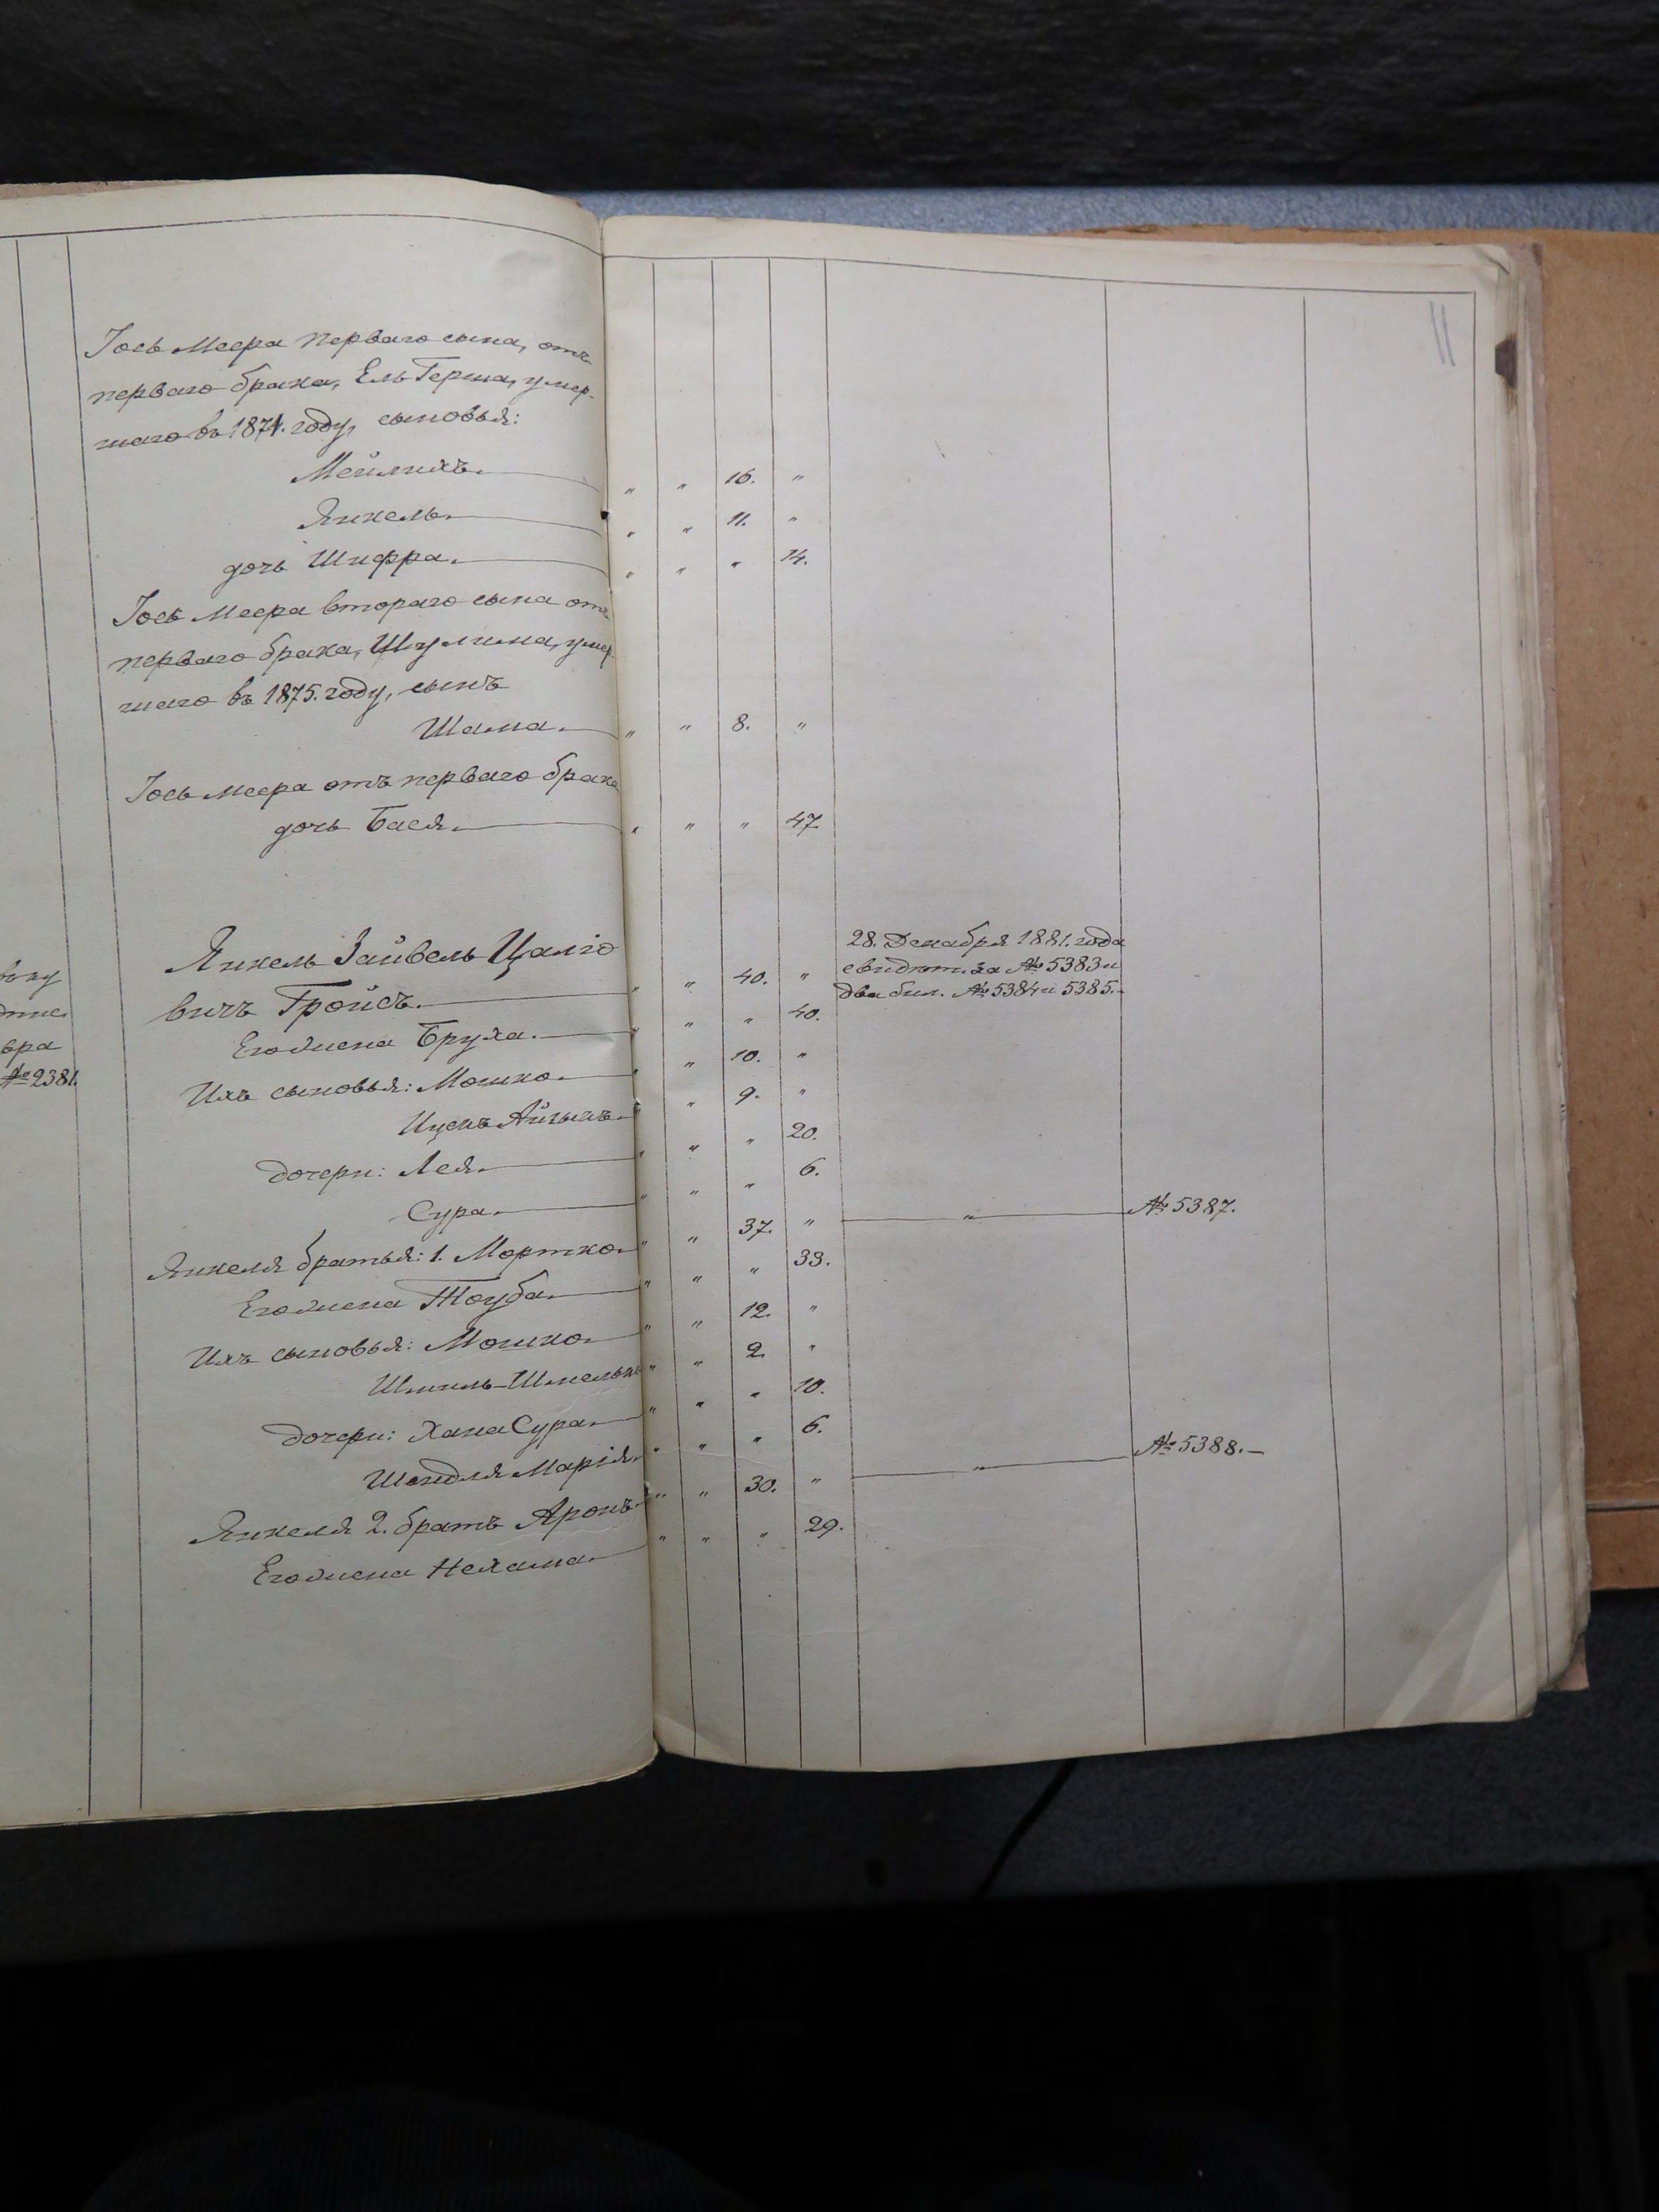 11
Іось Меера перваго сына, отъ
перваго брака, Ель Герша, умер-
шаго въ 1874. году, сыновья:
Мейлихъ. " " 16. "
Янкель. " " 11. "
дочь Шифра. " " " 14.
Іось Меера втораго сына отъ
перваго брака, Шулима, умер-
шаго въ 1875. году, сынъ
Шама. " " 8. "
Іось Меера отъ перваго брака
дочь Бася. " " " 47.
28. Декабря 1881. года
Янкель Зайвель Цаліо
свидѣт. за № 5383 и
вичъ Гройсъ. " " 40. "
два бил. № 5384 и 5385.
Его жена Бруха. " " " 40.
№ 2381.
Ихъ сыновья: Мошко. " " 10. "
Ицекъ Айзыкъ. " " 9. "
дочери: Лея. " " " 20.
Сура. " " " 6.
Янкеля братья: 1. Мортко. " " 37. " " № 5387.
Его жена Тоуба. " " " 33.
Ихъ сыновья: Мошко. " " 12. "
Шмиль-Шмелько " " 2. "
дочери: Хана Сура. " " " 10.
Шендля Марія. " " " 6.
Янкеля 2. братъ Аронъ. " " 30. " " № 5388.—
Его жена Нехама. " " " 29.